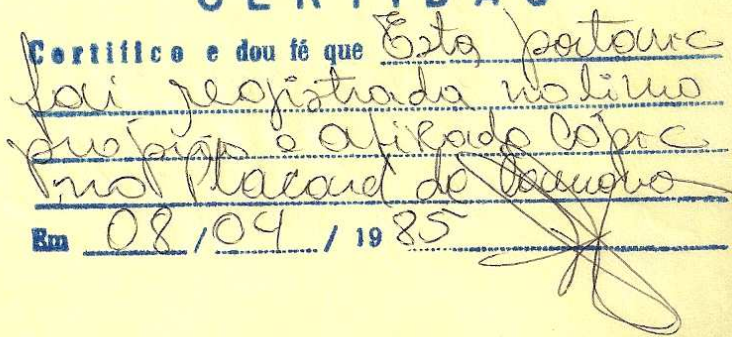 CERTIDÃO
Certifico e dou fé que Esta portaria
foi registrada no livro
próprio e afixado Cópia
no Placard da Câmara
Em 08 / 04 / 19 85